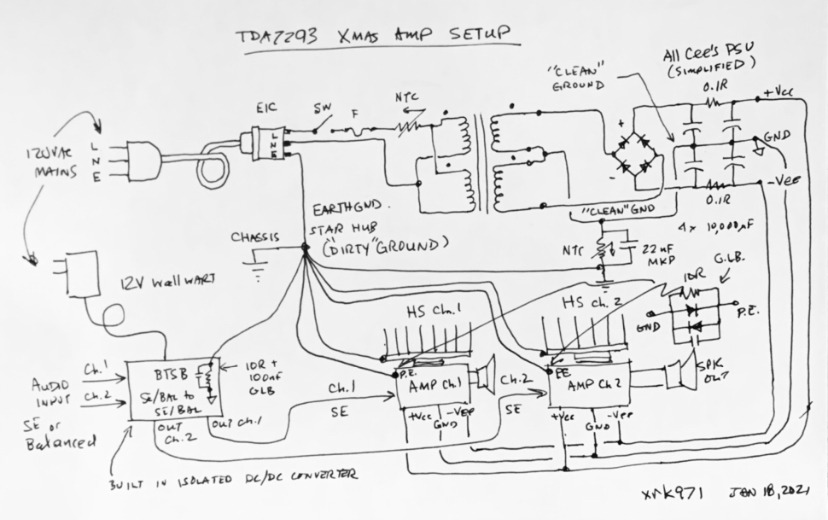 TDA7293 XMAS AMP SETUP
All Cee's PSU
(SIMPLIFIED)
"CLEAN"
GROUND
0.1R
+Vcc
EIC
SW
F
NTC
120VAC
MAINS
L
N
E
L
N
E
+
-
GND
-VEE
0.1R
EARTH GND.
STAR HUB
("DIRTY" GROUND)
"CLEAN" GND
4x 10,000uF
CHASSIS
NTC
22uF
MKP
G.L.B.
10R
12V wallwart
HS Ch.1
HS Ch.2
GND
P.E.
AUDIO
INPUT
SE or
Balanced
Ch.1
Ch.2
BTSB
SE/BAL to
SE/BAL
10R +
100nF
GLB
OUT
Ch.2
OUT Ch.1
Ch.1
SE
P.E.
AMP Ch.1
+Vcc
GND
-VEE
Ch.2
SE
P.E.
AMP Ch2
+Vcc
GND
-VEE
SPK
OUT
BUILT IN ISOLATED DC/DC CONVERTER
xrk971 JAN 18, 2021